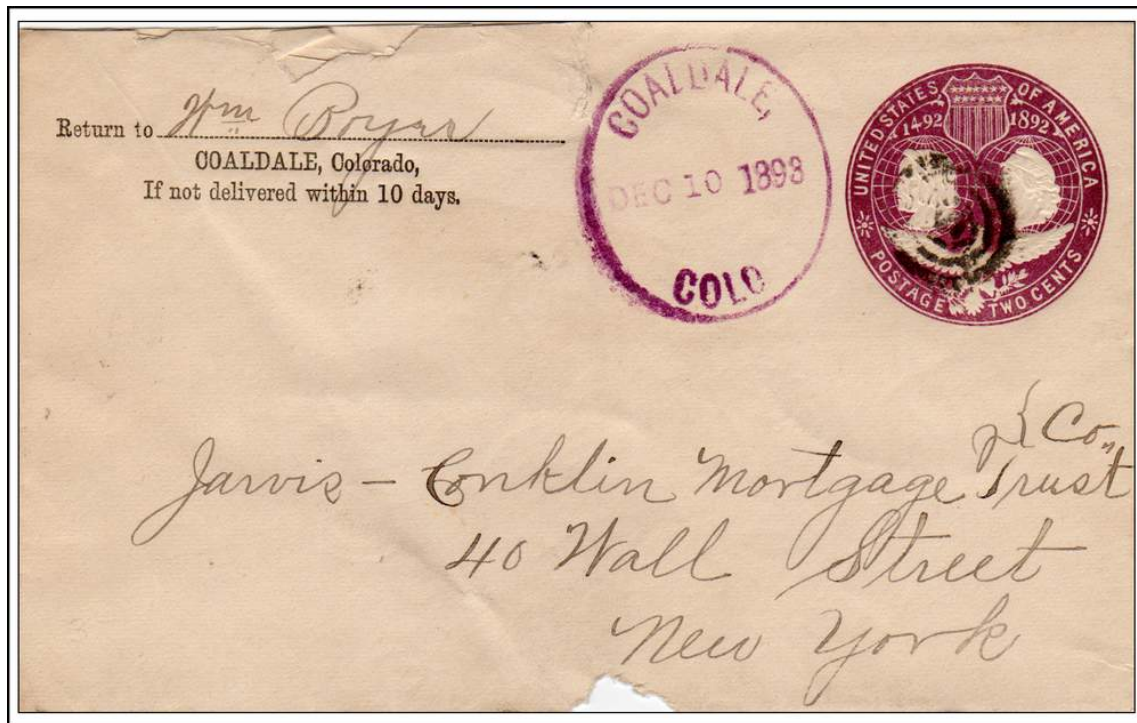 Return to Wm Boyer
COALDALE, Colorado,
If not delivered within 10 days.
COALDALE,
DEC 10 1893
COLO
UNITED STATES OF AMERICA
1492 1892
POSTAGE TWO CENTS
Jarvis - Conklin Mortgage Trust Co.
40 Wall Street
New York